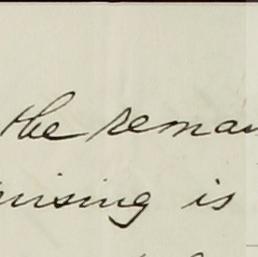 the remar
ising is